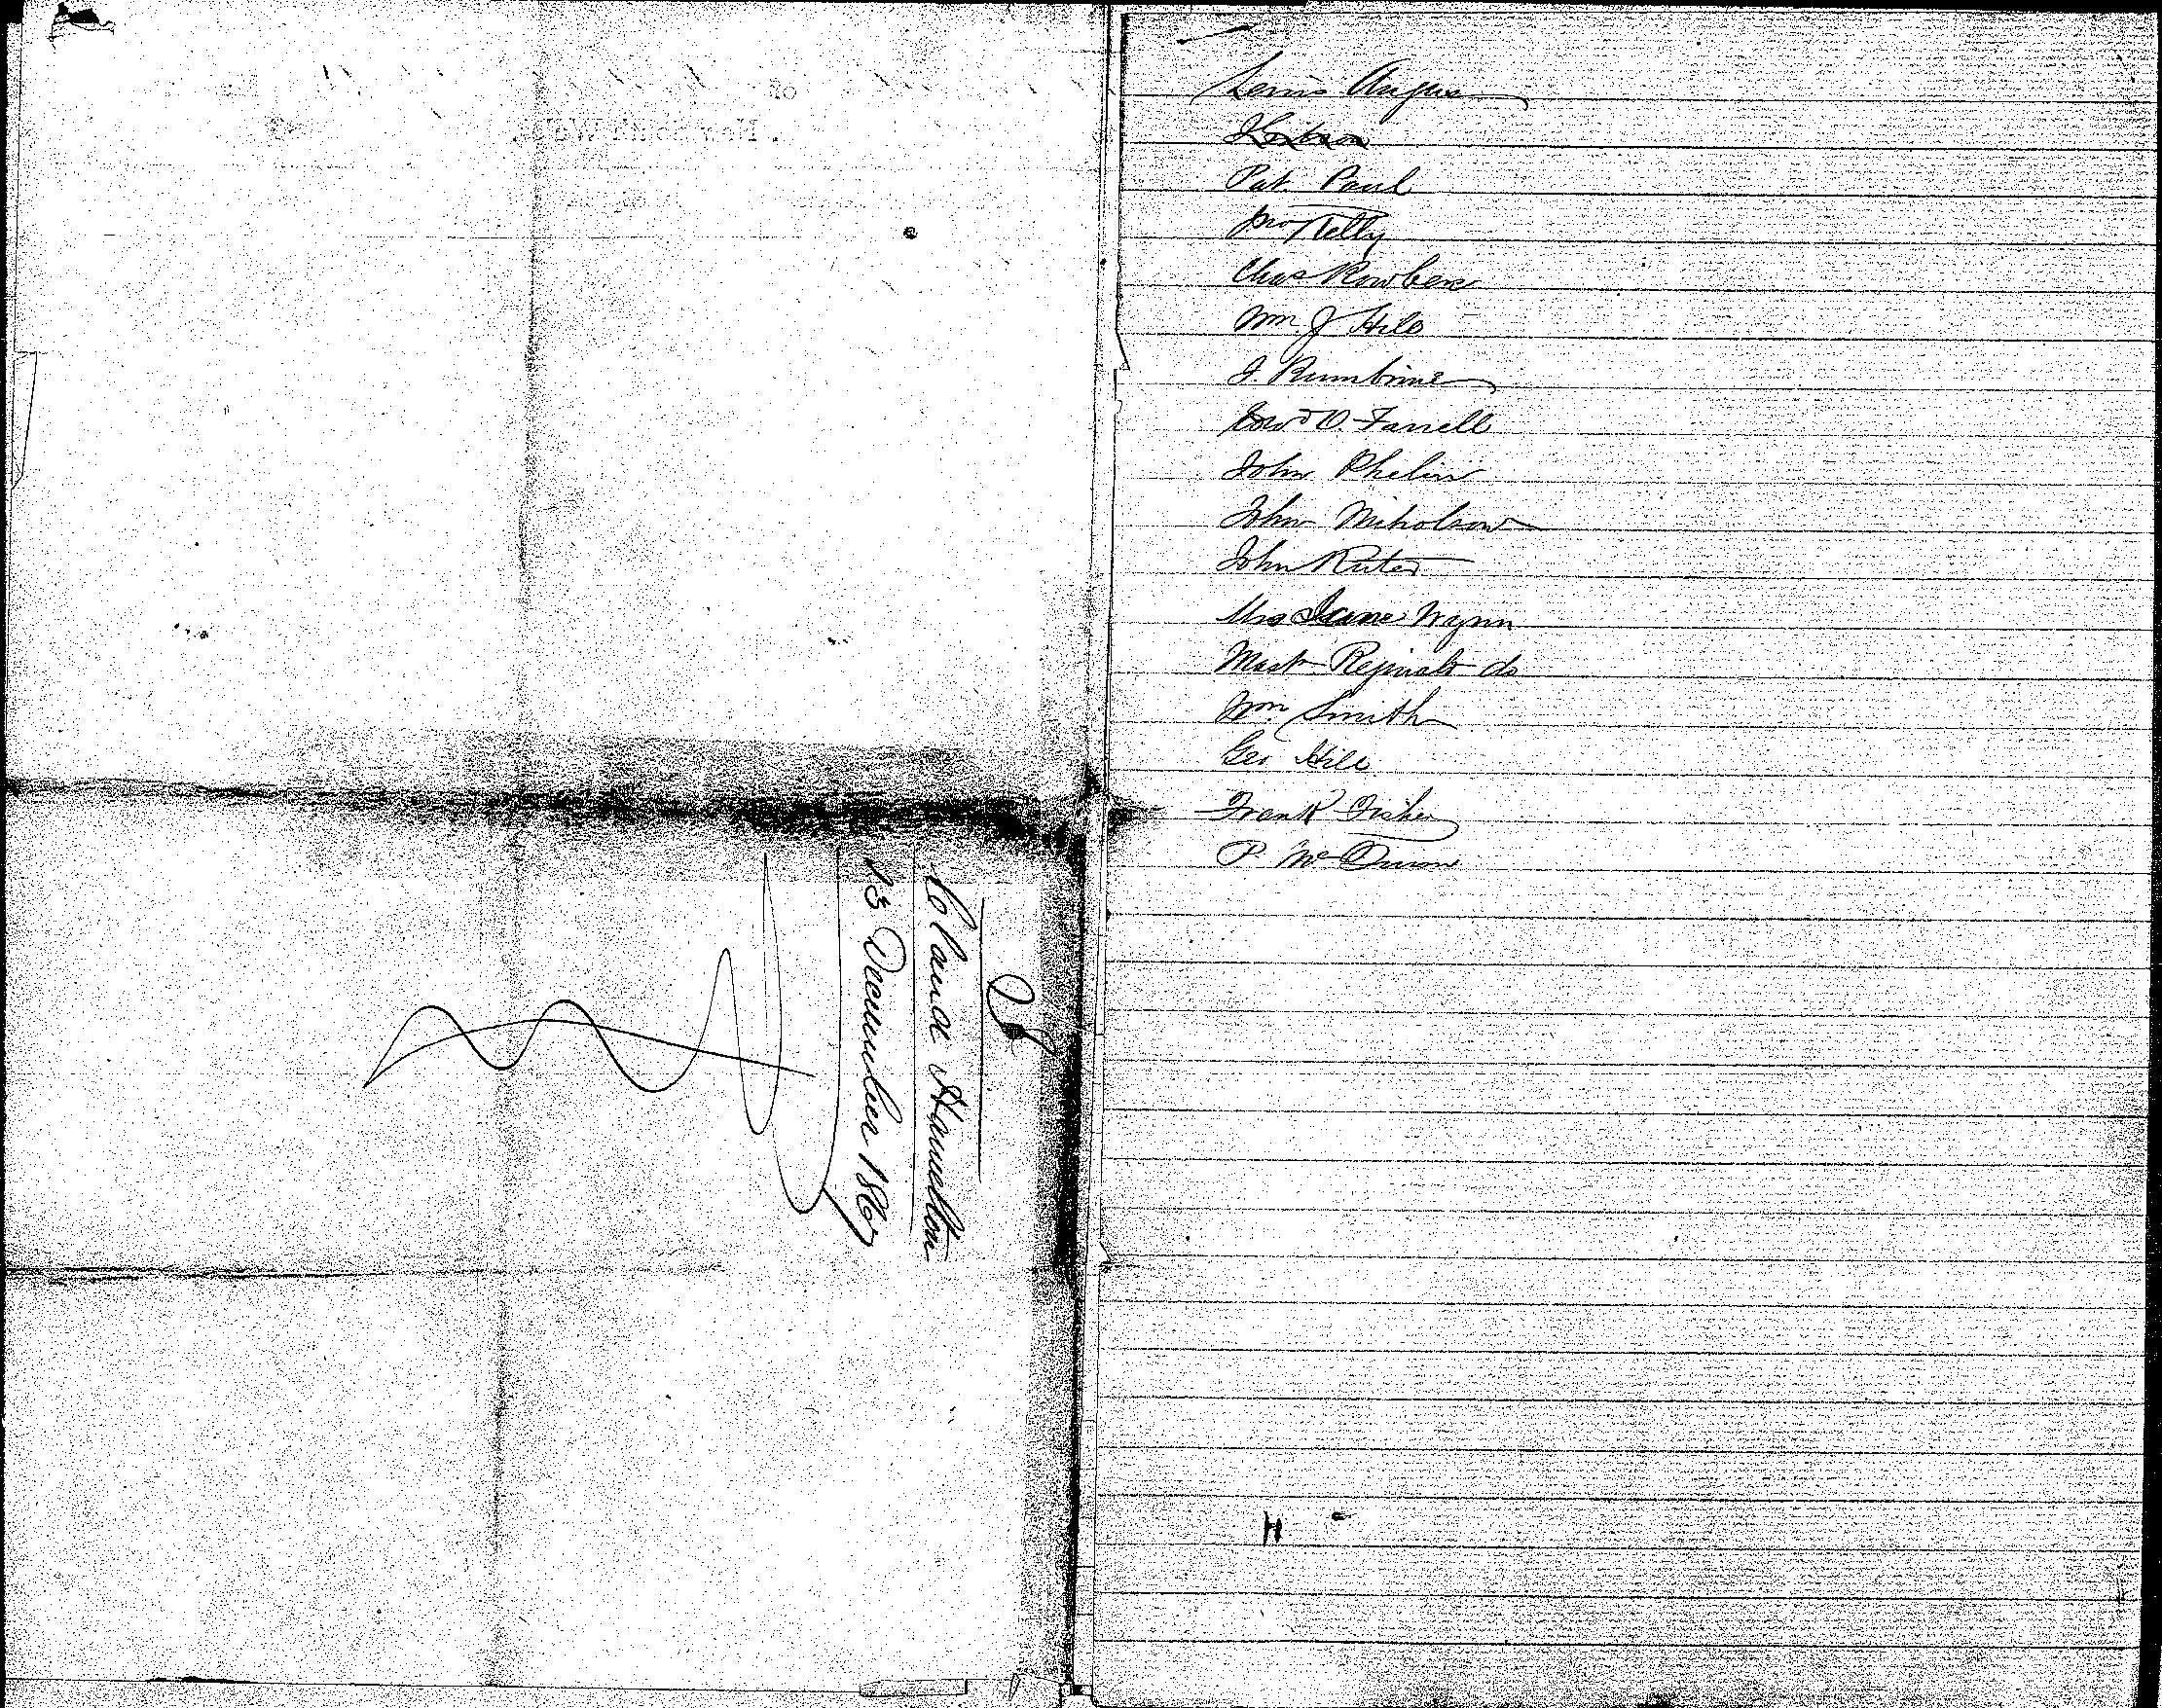 Lewis Angus
Pat Paul
Jno Kelly
Chas Rowben
Wm J Hill
J.
Edwd O. Farrell
John Phelin
John Nicholson
John
Mrs Jane Wynn
Mast Reginald do
Wm Smith
Geo Hill
Frank Fisher
P. Mc
28
Claud Hamelton
13 December 1867
H